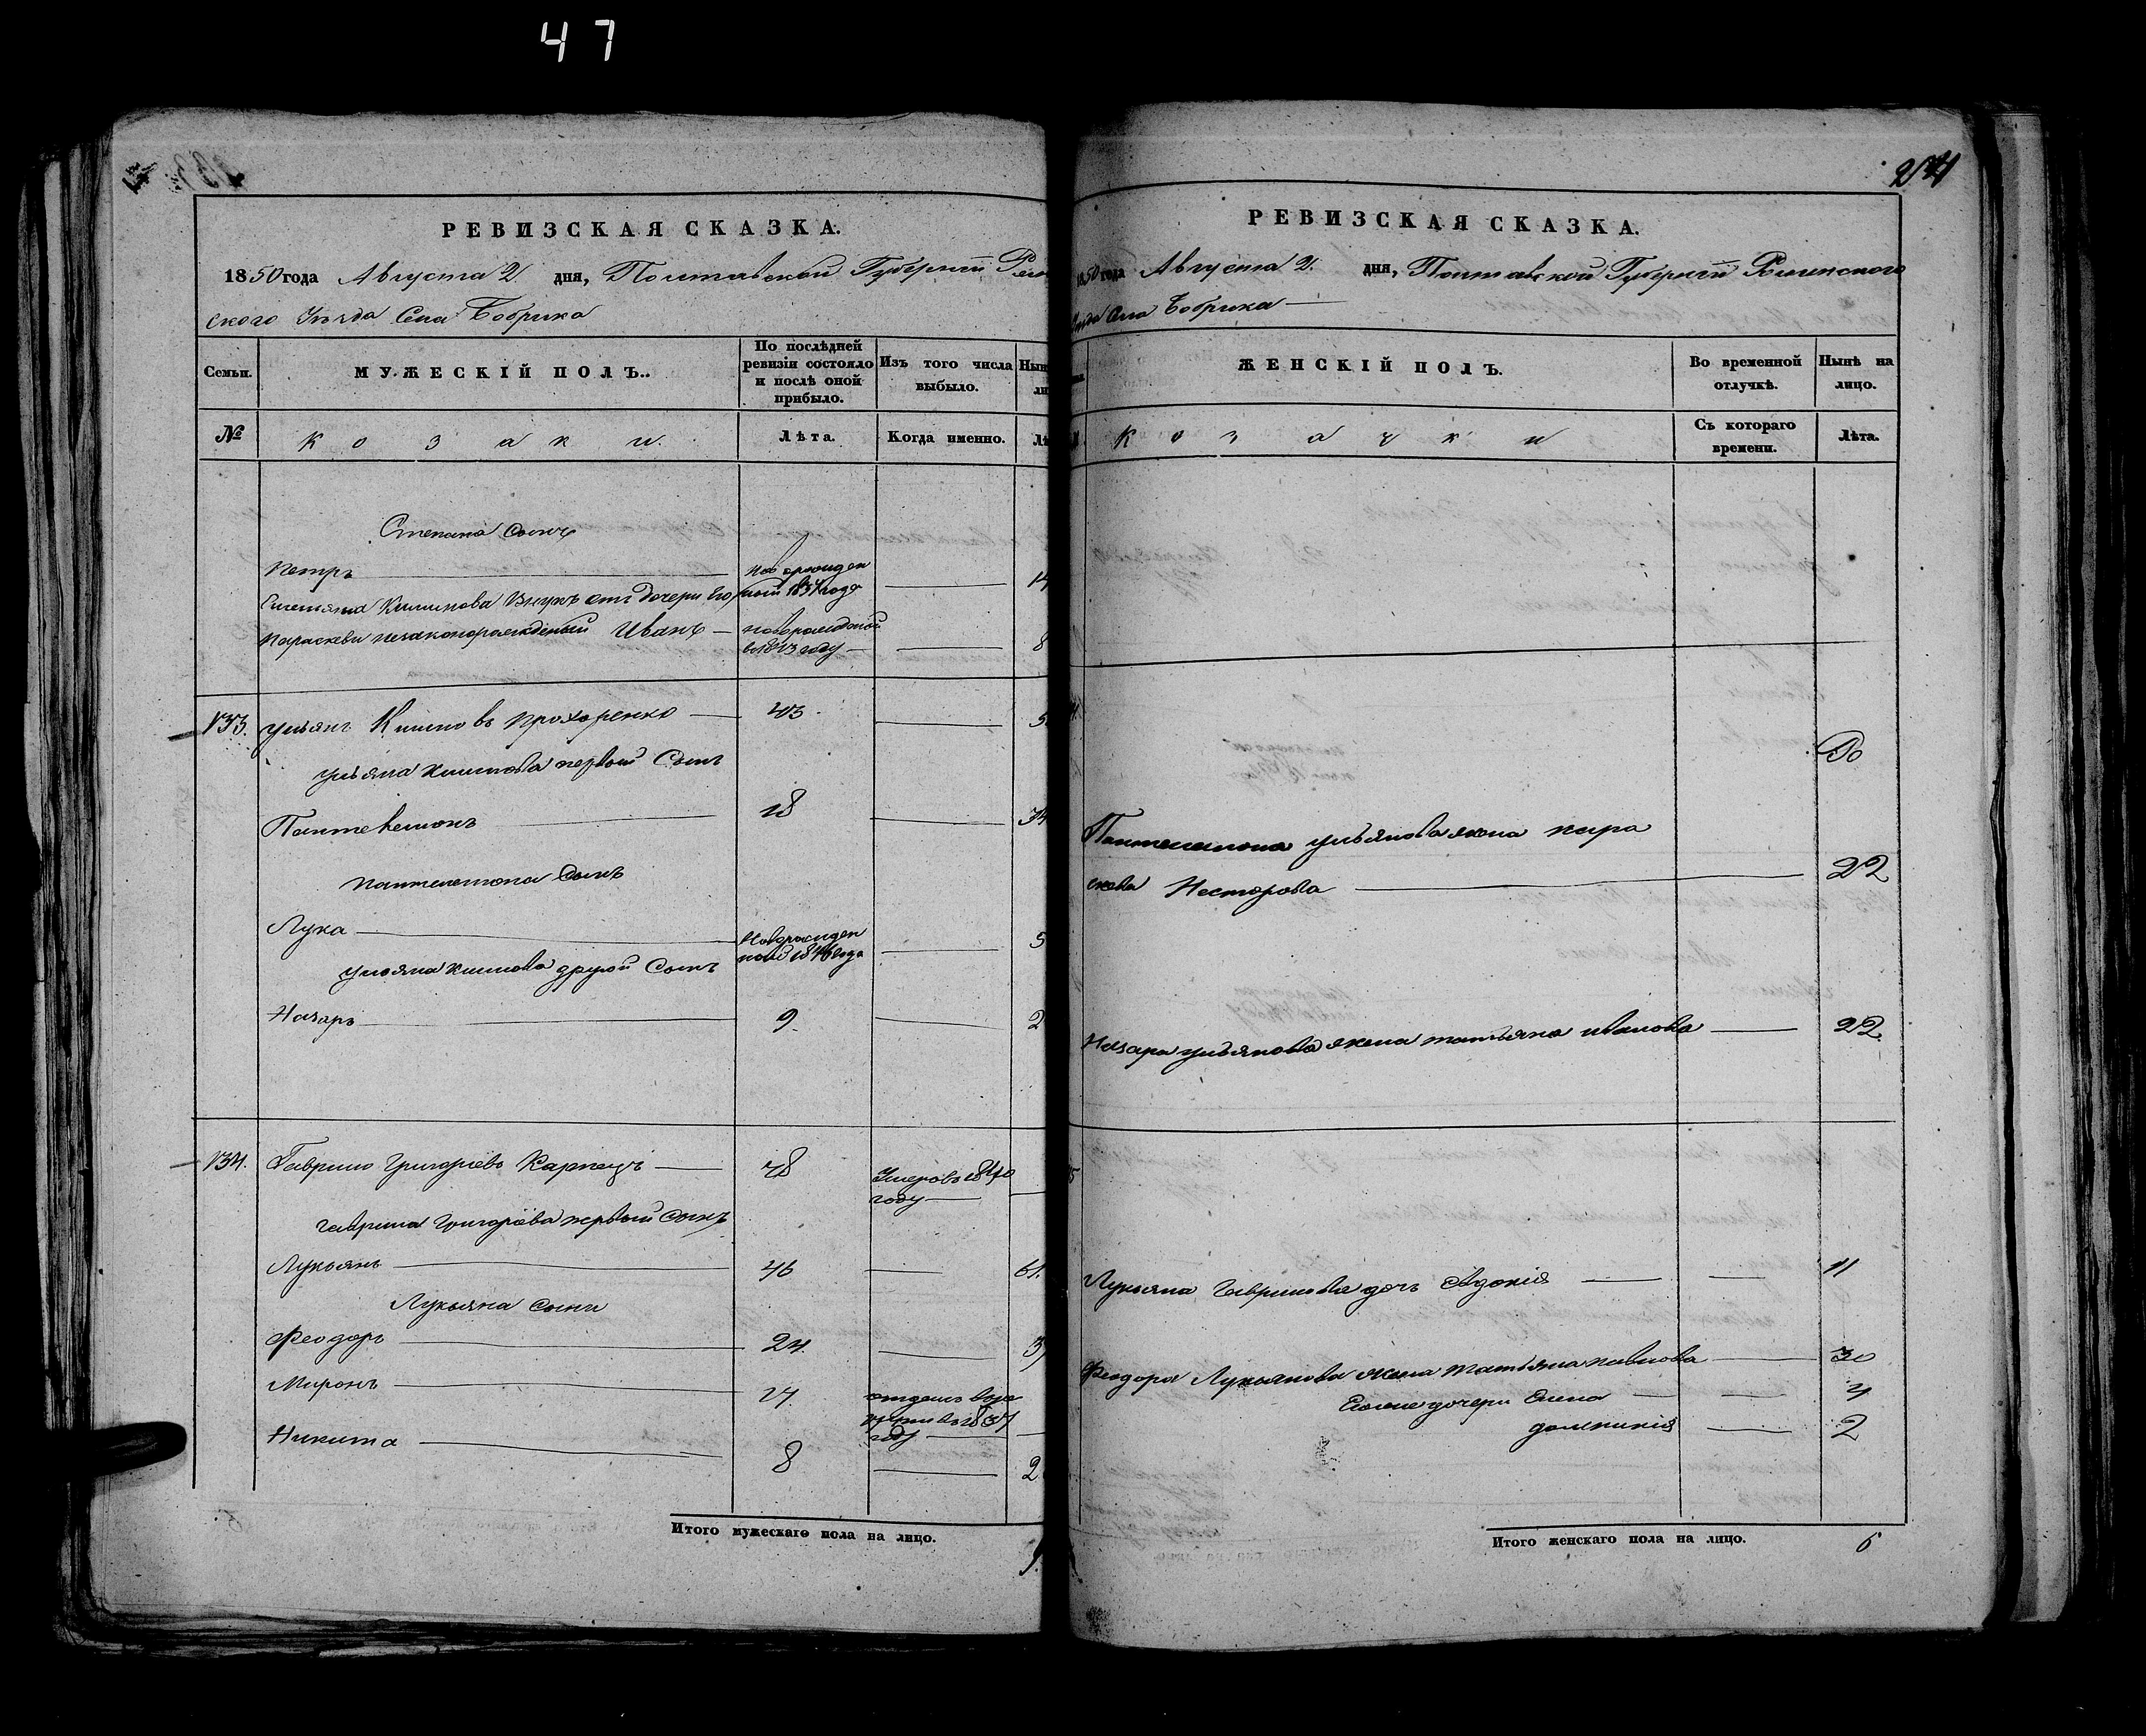 47
РЕВИЗСКАЯ СКАЗКА.
1850 года Августа 2 дня, Полтавской Губерніи
ского Уезда Села Бобрика
Семьи.
МУЖЕСКІЙ ПОЛЪ.
По послѣдней
ревизіи состояло
и послѣ оной
прибыло.
Изъ того числа
выбыло.
№
Козаки
Лѣта.
Когда именно.
Степана Сынъ
Петръ
Новорожден
ный года
14
Внукъ отъ дочери его
Параскеви незаконорожденный Иванъ
Новорожденой
в 1843 году
8
133.
Ульянъ Климовъ Прохоренко
43
Ульяна Климова первой Сынъ
Пантелемонъ
18
34
Пантелемона Сынъ
Лука
Новорожден
ной 1846 года
5
Ульяна Климова другой Сынъ
Назаръ
9.
134.
Гаврило Григорьевъ Карпецъ
48
Умеръ в 1840
году
Гаврила Григорьева первый Сынъ
Лукьянъ
46
61.
Лукьяна Сыни
Феодоръ
24.
Миронъ
17.
отданъ в
в 1837
году
Никита
8
Итого мужескаго пола на лицо.
РЕВИЗСКАЯ СКАЗКА.
1850 года Августа 2. дня, Полтавской Губерніи Роменского
Уезда Села Бобрика
ЖЕНСКІЙ ПОЛЪ.
Во временной
отлучкѣ.
Нынѣ на
лицо.
Козачки
Съ котораго
времени.
Лѣта.
Пантелемона Ульянова жена Пара
скева Несторова
22
Назара Ульянова жена Татьяна Иванова
22
Лукьяна Гаврилова дочь Евдокія
11
Феодора Лукьянова жена Татьяна Павлова
30
Его же дочери Елена
4
Домникія
2
Итого женскаго пола на лицо.
6